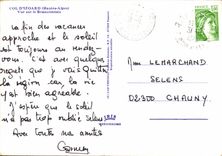 COL D'IZOARD (Hautes-Alpes)
Vue sur le Briançonnais
La fin des vacances
approche et le soleil
est toujours au rendez-
vous. C'est avec quelques
regrets que je vais quitter
la région car la vie
est bien agréable.
J'espère que le soleil
n'a pas trop oublié
Avec toutes mes amitiés
Mme LEMARCHAND
SELENS
02300 CHAUNY